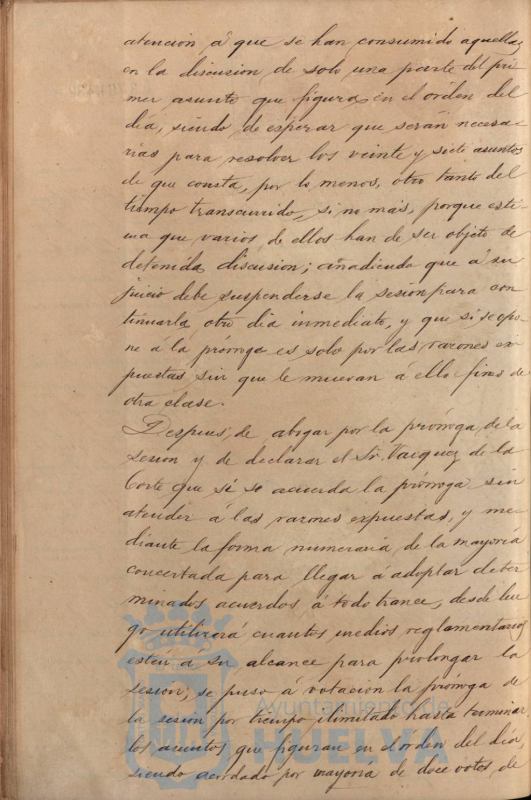 atención á que se han consumido aquellas
en la discusion de solo una parte del pri
mer asunto que figura en el órden del
dia, siendo de esperar que serán necesa
rias para resolver los veinte y siete asuntos
de que consta, por lo menos, otro tanto del
tiempo transcurrido, si no mas, porque esti
ma que varios de ellos han de ser objeto de
detenida discusion; añadiendo que á su
juicio debe suspenderse la sesión para con
tinuarla otro dia inmediato, y que si se opo
ne á la prórroga es solo por las razones ex
puestas sin que le muevan á ello fines de
otra clase.
Despues de abogar por la prórroga de la
sesión y de declarar el Sr. Vazquez de la
Corte que si se acuerda la prórroga sin
atender á las razones expuestas, y me
diante la forma numeraria de la mayoria
concertada para llegar á adoptar deter
minados acuerdos á todo trance, desde lue
go utilizará cuantos medios reglamentarios
esten á su alcance para prolongar la
sesión; se puso á votación la prórroga de
la sesión por tiempo ilimitado hasta terminar
los asuntos que figuran en el orden del dia
siendo acordado por mayoria de doce votos, de
Ayuntamiento de
HUELVA